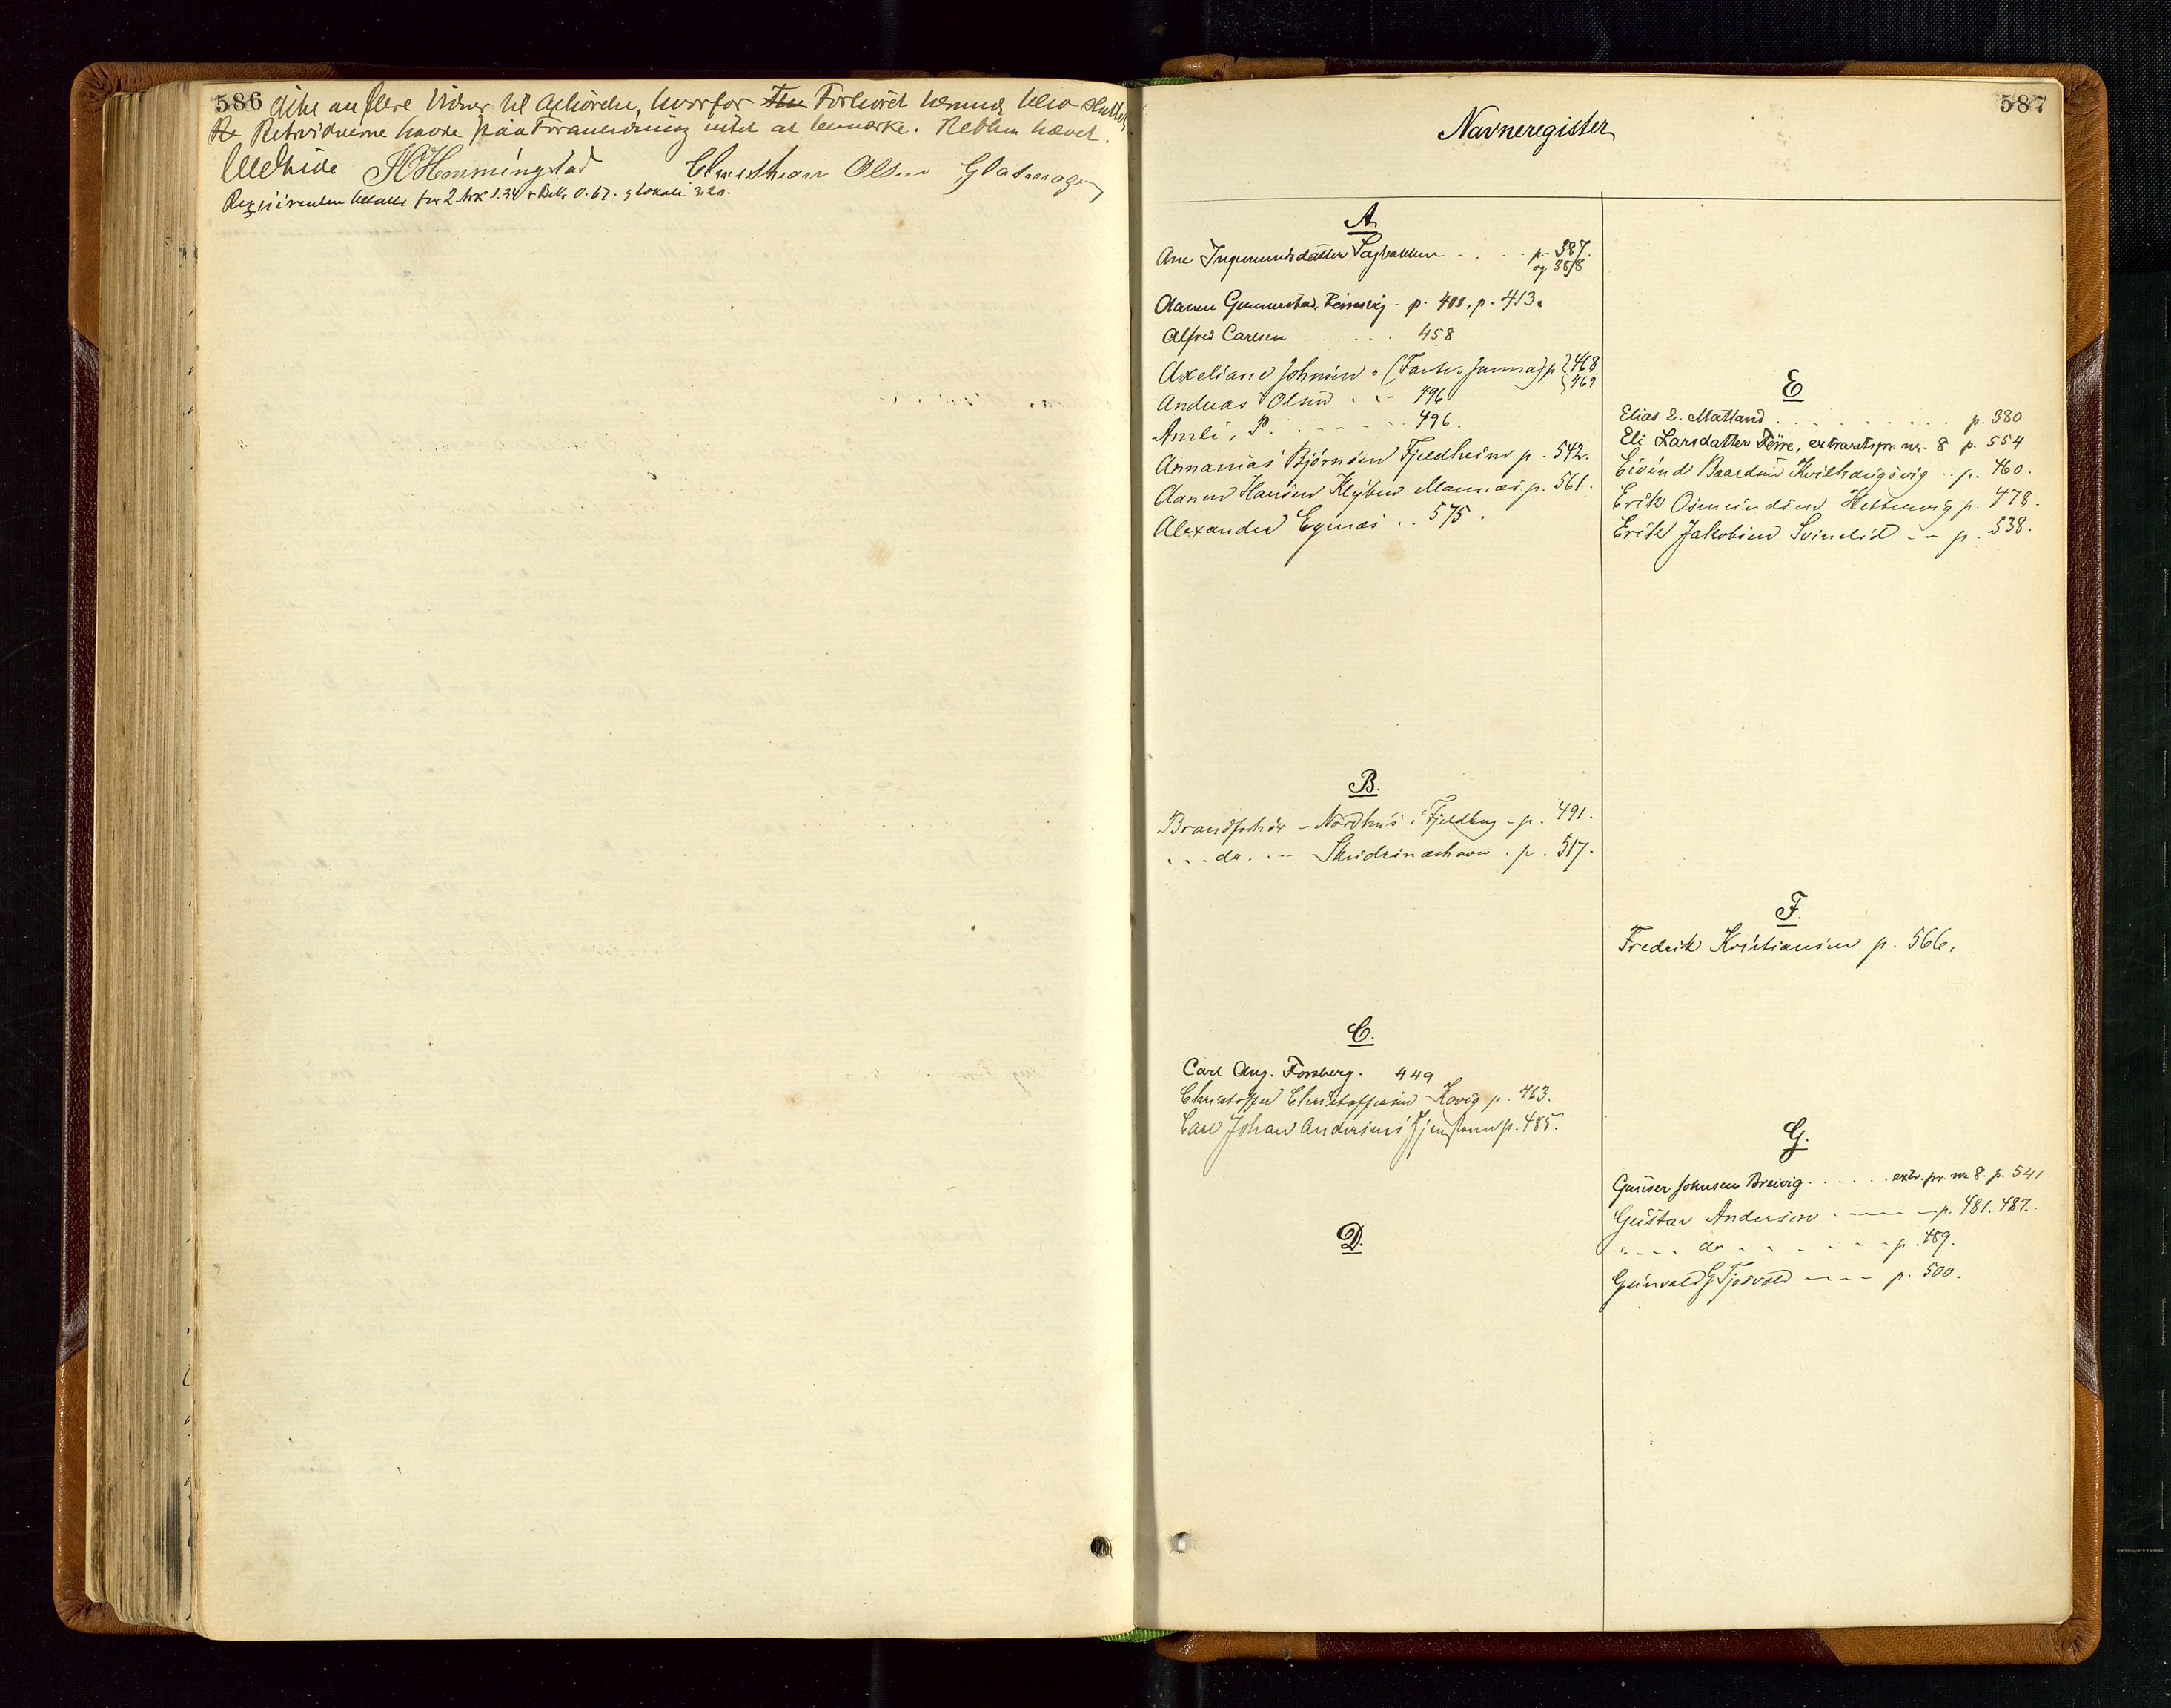 586
ikke an flere Vidner til Afhørelse, hvorfor Forhøret hermed blev sluttet
Retsvidnerne havde paa Foranledning intet at bemærke. Retten hævet.
Hemmingstad Christian Olsen
Reqvirenten betalte for 2 Ark 1.34 0.67. Lokale 3.20.
587
Navneregister
A.
Ane Ingemundsdatter Sagbakken . . . . p. 387.
og 388
Aanen Gunnerstad, p. 411, p. 413.
Alfred Carlsen . . . . . . 458
Axeliane Johnsen " (Fante Janna) p 468
469
Andreas Olsen . . - 496
Amli, P. . - - - - . 496.
Annanias Bjørnsen Fjeldheim p. 542.
Aanen Hansen Mannæs p. 561.
Alexander Egenæs . . 575.
B.
Brandforhør - Nordhus i Fjeldberg - p. 491.
. . . do. . . - Skudesneshavn . p. 517.
C.
Carl Aug. Forsberg. 449
Christoffer Christoffersen p. 463.
Carl Johan Andersens p. 485.
D.
E
Elias E. Matland . . . . . . . . . . p. 380
Eli Larsdatter Førre, extraretspr. nr. 8 p. 554
Eivind Baardsen Kvilhaugsvig - p. 460.
Erik Osmundsen Hettervig p. 478.
Erik Jakobsen Svinelid - - p. 538.
F.
Fredrik Kristiansen p. 566.
G.
Gunder Johnsen Breivig . . . . . . extr. pr. nr 8. p. 541
Gustav Andersen . - - - - p. 481. 487.
" - - - do - - - - - - p. 489.
Gunvald G Tjosvold - - - - p. 500.